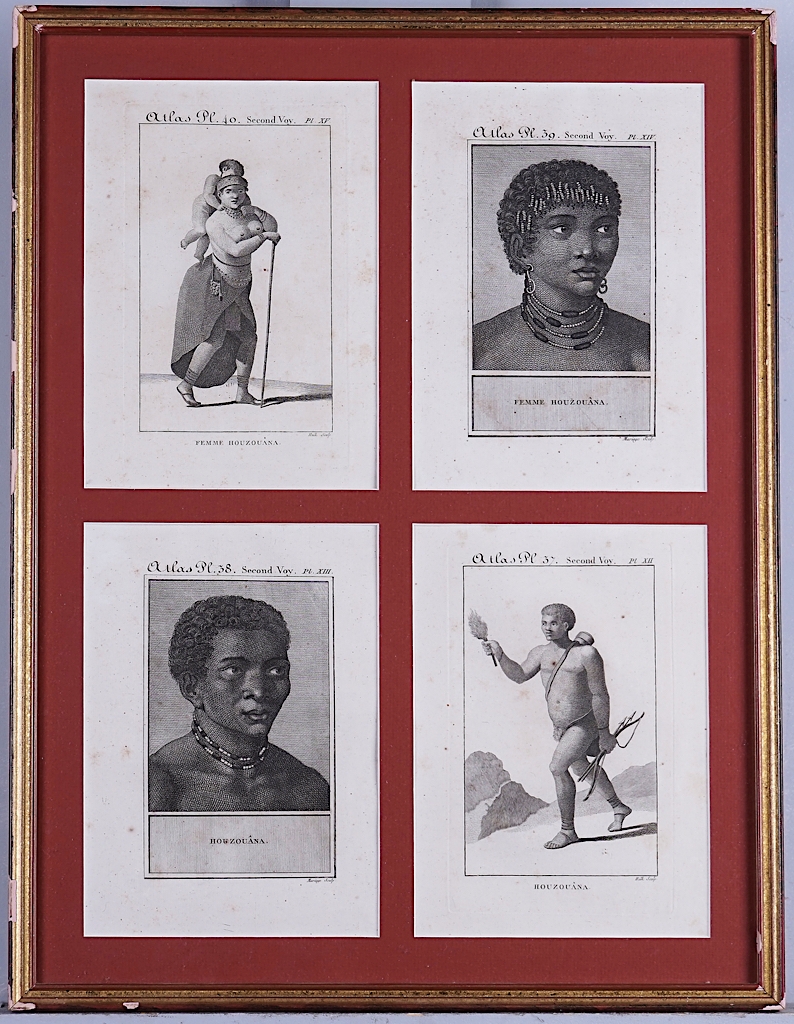 Atlas Pl. 40. Second Voy. Pl. XV
FEMME HOUZOUÂNA.
Atlas Pl. 39. Second Voy. Pl. XIV.
FEMME HOUZOUÂNA.
Atlas Pl. 38. Second Voy. Pl. XIII.
HOUZOUÂNA.
Atlas Pl 37. Second Voy. Pl XII
HOUZOUÂNA.